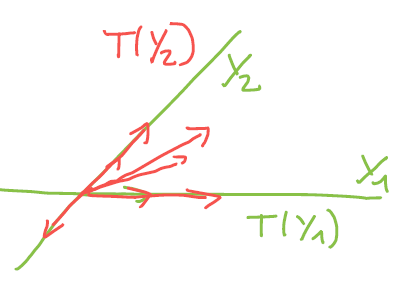 T(Y₂)
Y₂
Y₁
T(Y₁)